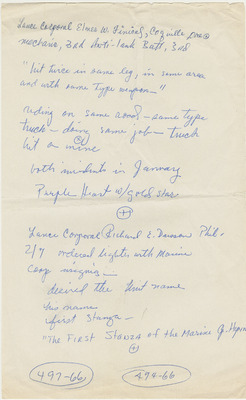 Lance Corporal Elmer W. Coquille
mechanic, 3rd Anti-Tank Batt, 3rd
"hit twice in same leg, in same area
and with same type weapon—"
riding on same road - same type
truck - doing same job - truck
hit on mine
both incidents in January
Purple Heart w/gold star
Lance Corporal Richard E. Phil-
2/7 ordered lighter with Marine
Corp insignia -
desired the Hunt name
his name
first stanza -
"The First Stanza of the Marine
497-66 494-66